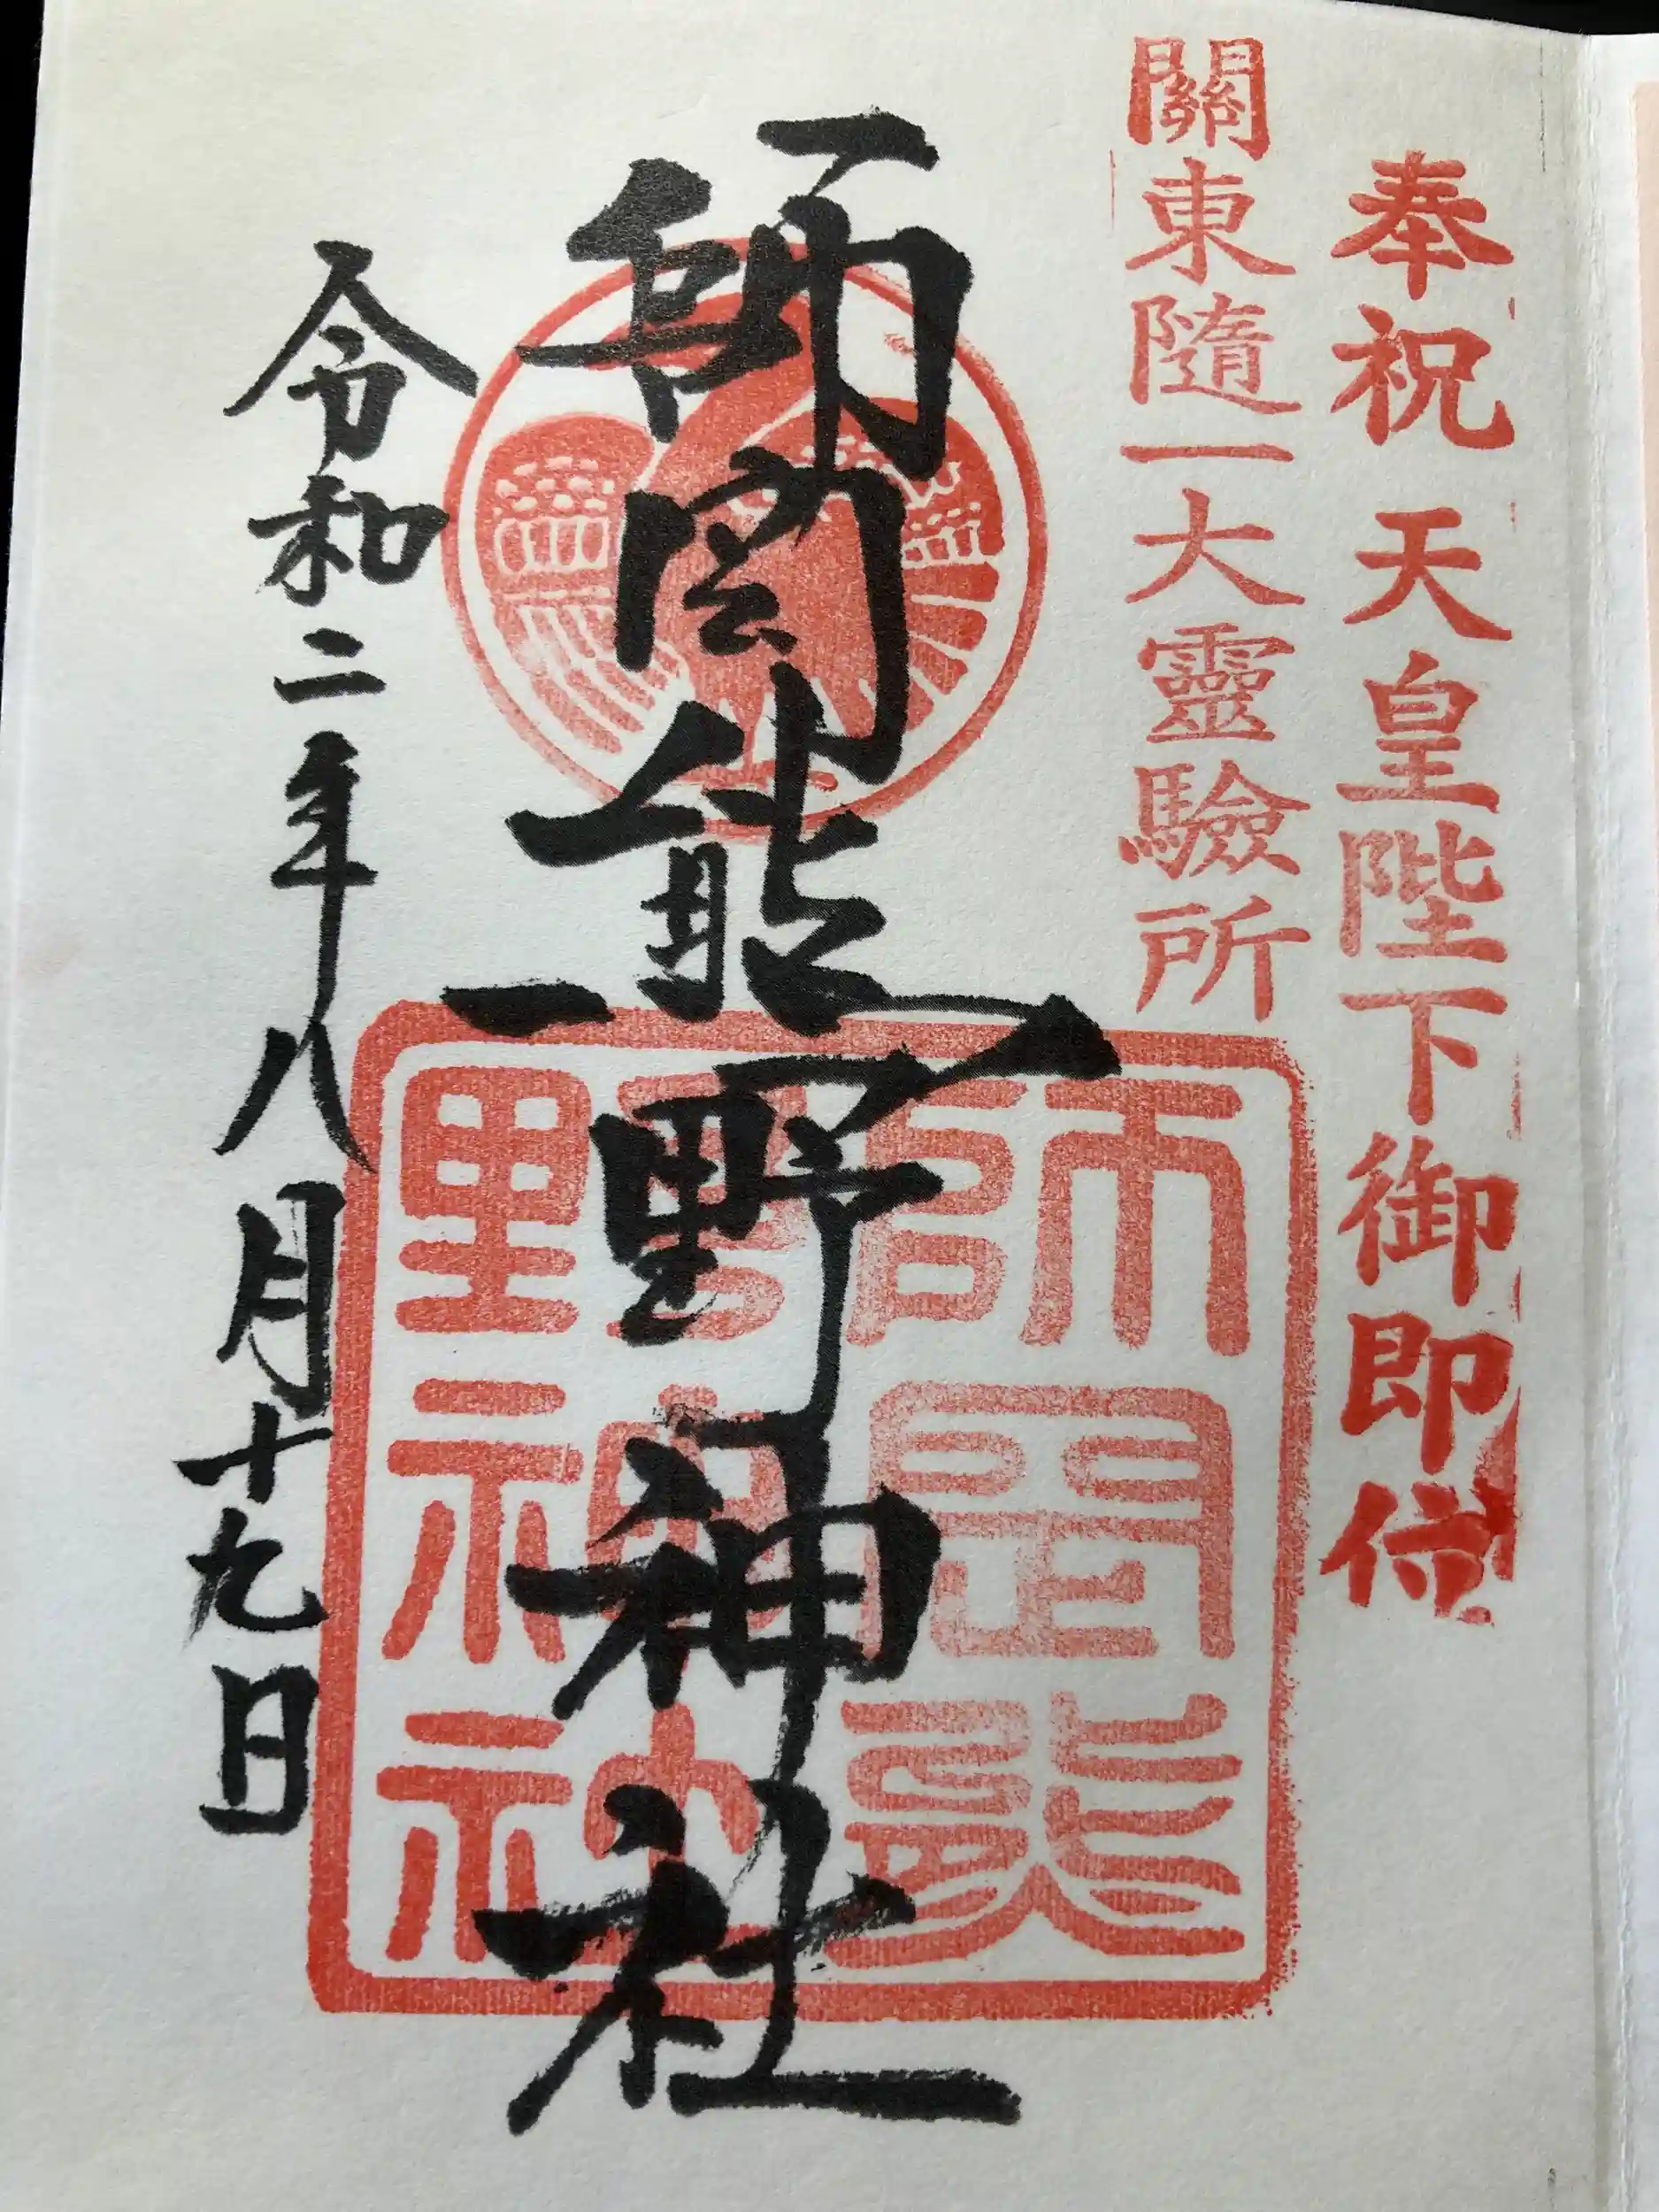 奉祝 天皇陛下御即位
關東隨一大靈驗所
師岡熊野神社
師岡熊野神社
令和二年八月十九日